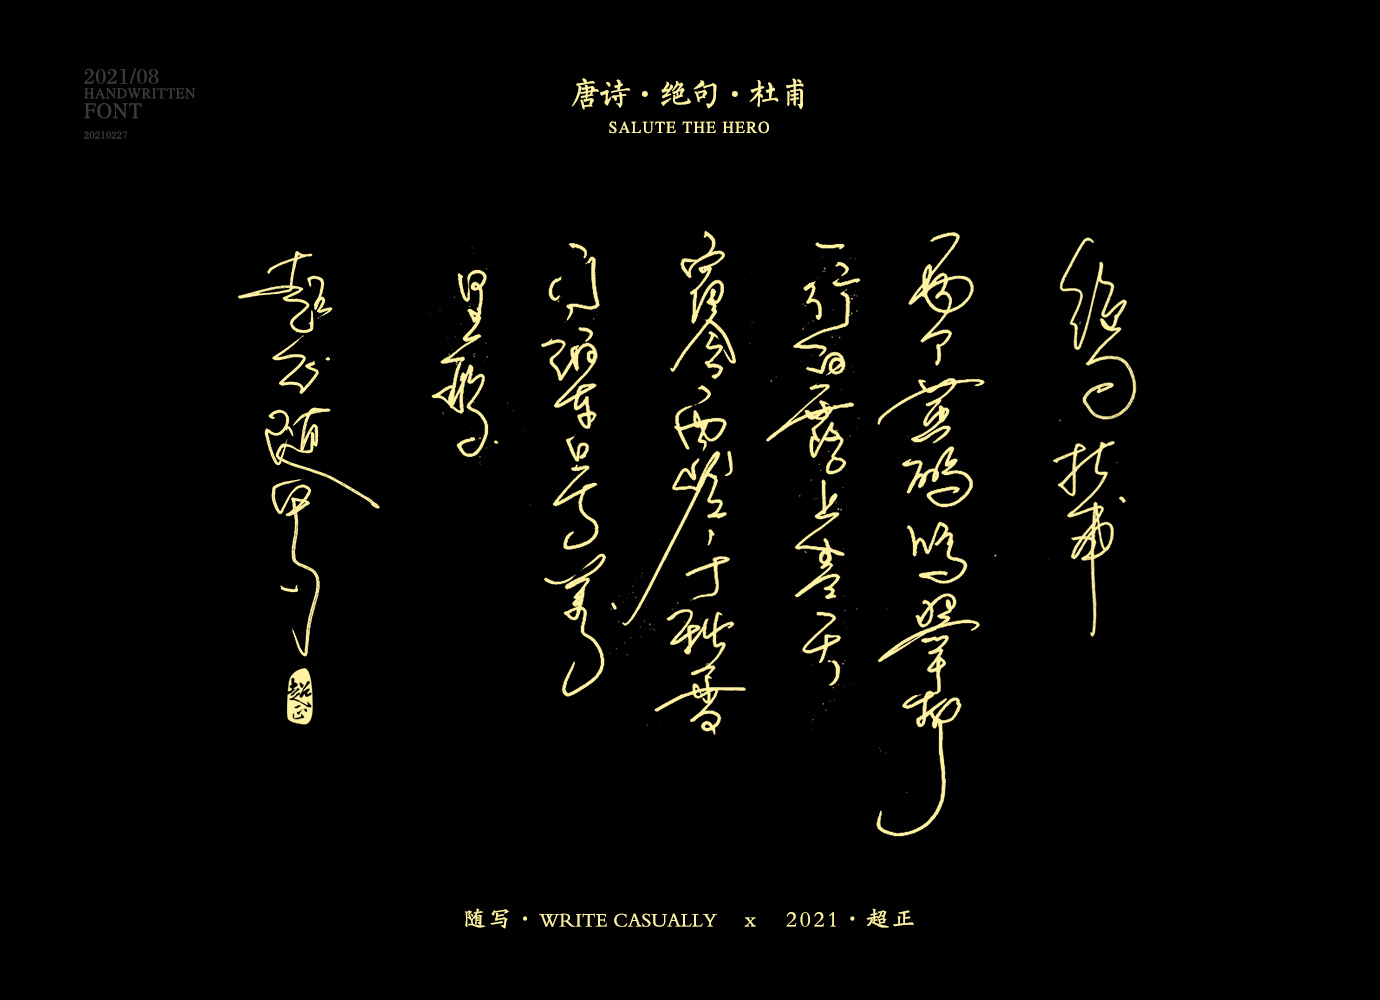 2021/08
HANDWRITTEN
FONT
20210227
唐诗·绝句·杜甫
SALUTE THE HERO
绝句 杜甫
两个黄鹂鸣翠柳
一行白鹭上青天
窗含西岭千秋雪
门泊东吴万
里船
超正随
超正
随写·WRITE CASUALLY x 2021·超正